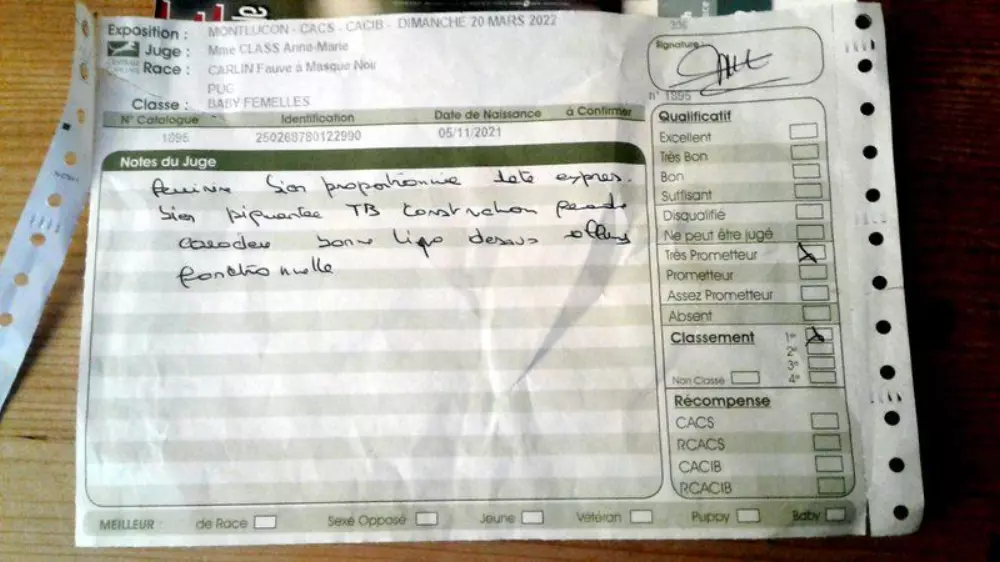 Exposition : MONTLUCON - CACS - CACIB - DIMANCHE 20 MARS 2022
Juge : Mme CLASS Anne-Marie
Race : CARLIN Fauve à Masque Noir
PUG
Classe : BABY FEMELLES
N° Catalogue Identification Date de Naissance à Confirmer
1895 250268780122990 05/11/2021
Notes du Juge
feminine bien proportionnée tete expres.
bien pigmentée TB Construction
bonne ligne dessus allure
fonctionnelle
Signature
n° 1895
Qualificatif
Excellent
Très Bon
Bon
Suffisant
Disqualifié
Ne peut être jugé
Très Prometteur
Prometteur
Assez Prometteur
Absent
Classement 1°
2°
3°
Non Classé 4°
Récompense
CACS
RCACS
CACIB
RCACIB
MEILLEUR : de Race Sexe Opposé Jeune Vétéran Puppy Baby